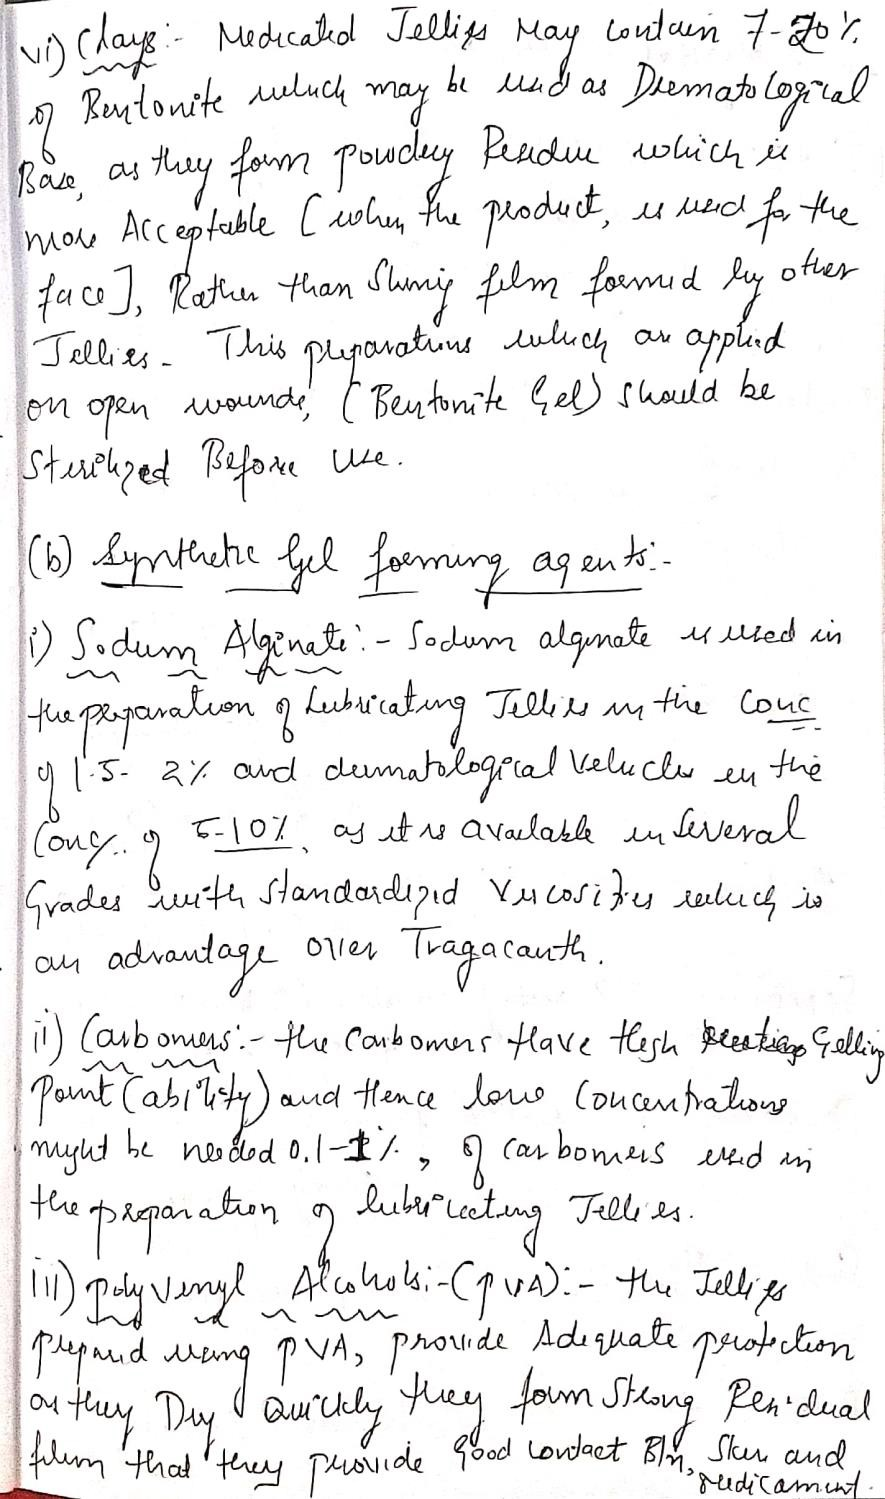 vi) Clays:- Medicated Jellies May contain 7-20%
of Bentonite which may be used as Dermatological
Base, as they form powdery Residue which is
more Acceptable [when the product, is used for the
face], Rather than Shiny film formed by other
Jellies. This preparations which are applied
on open wounds, (Bentonite Gel) should be
Sterilized Before use.
(b) Synthetic Gel forming agents:-
i) Sodium Alginate:- Sodium alginate is used in
the preparation of Lubricating Jellies in the Conc
of 1.5- 2% and dermatological Vehicles in the
Conc. of 5-10%, as it is available in Several
Grades with standardized Viscosities which is
an advantage over Tragacanth.
ii) Carbomers:- the Carbomers Have High Gelling
Point (ability) and Hence low Concentrations
might be needed 0.1-1%, of carbomers used in
the preparation of lubricating Jellies.
iii) polyvinyl Alcohols:-(PVA):- the Jellies
prepared using PVA, provide Adequate protection
as they Dry Quickly they form Strong Residual
film that they provide Good contact B/n, Skin and
medicament.